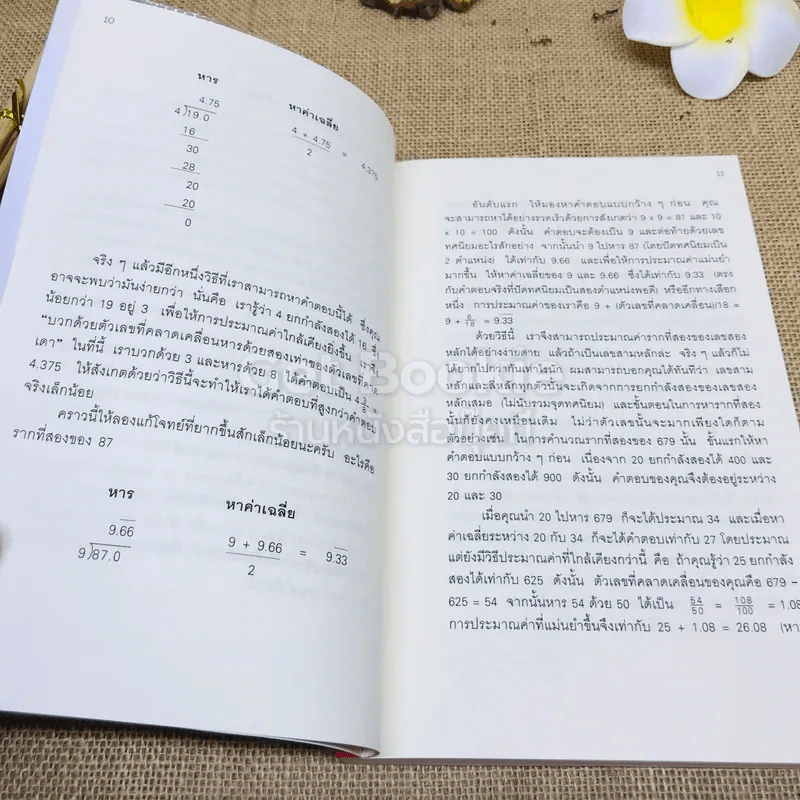 10
หาร
หาค่าเฉลี่ย
4.75
4 19.0
16
30
28
20
20
0
4 + 4.75
2
= 4.375
จริง ๆ แล้วมีอีกหนึ่งวิธีที่เราสามารถหาคำตอบนี้ได้ ซึ่งคุณ
อาจจะพบว่ามันง่ายกว่า นั่นคือ เรารู้ว่า 4 ยกกำลังสองได้ 16 ซึ่ง
น้อยกว่า 19 อยู่ 3 เพื่อให้การประมาณค่าใกล้เคียงยิ่งขึ้น เราจึง
“บวกด้วยตัวเลขที่คลาดเคลื่อนหารด้วยสองเท่าของตัวเลขที่คาด
เดา” ในที่นี้ เราบวกด้วย 3 และหารด้วย 8 ได้คำตอบเป็น 4 3/8 =
4.375 ให้สังเกตด้วยว่าวิธีนี้จะทำให้เราได้คำตอบที่สูงกว่าคำตอบ
จริงเล็กน้อย
คราวนี้ให้ลองแก้โจทย์ที่ยากขึ้นสักเล็กน้อยนะครับ อะไรคือ
รากที่สองของ 87
หาร
หาค่าเฉลี่ย
9.66
9 87.0
9 + 9.66
2
= 9.33
11
อันดับแรก ให้มองหาคำตอบแบบกว้าง ๆ ก่อน คุณ
จะสามารถหาได้อย่างรวดเร็วด้วยการสังเกตว่า 9 × 9 = 81 และ 10
× 10 = 100 ดังนั้น คำตอบจะต้องเป็น 9 และต่อท้ายด้วยเลข
ทศนิยมอะไรสักอย่าง จากนั้นนำ 9 ไปหาร 87 (โดยปัดทศนิยมเป็น
2 ตำแหน่ง) ได้เท่ากับ 9.66 และเพื่อให้การประมาณค่าแม่นยำ
มากขึ้น ให้หาค่าเฉลี่ยของ 9 และ 9.66 ซึ่งได้เท่ากับ 9.33 (ตรง
กับคำตอบจริงที่ปัดทศนิยมเป็นสองตำแหน่งพอดี) หรืออีกทางเลือก
หนึ่ง การประมาณค่าของเราคือ 9 + (ตัวเลขที่คลาดเคลื่อน)/18 =
9 + 6/18 = 9.33
ด้วยวิธีนี้ เราจึงสามารถประมาณค่ารากที่สองของเลขสอง
หลักได้อย่างง่ายดาย แล้วถ้าเป็นเลขสามหลักล่ะ จริง ๆ แล้วก็ไม่
ได้ยากไปกว่ากันเท่าไรนัก ผมสามารถบอกคุณได้ทันทีว่า เลขสาม
หลักและสี่หลักทุกตัวนั้นจะเกิดจากการยกกำลังสองของเลขสอง
หลักเสมอ (ไม่นับรวมจุดทศนิยม) และขั้นตอนในการหารากที่สอง
นั้นก็ยังคงเหมือนเดิม ไม่ว่าตัวเลขนั้นจะมากเพียงใดก็ตาม
ตัวอย่างเช่น ในการคำนวณรากที่สองของ 679 นั้น ขั้นแรกให้หา
คำตอบแบบกว้าง ๆ ก่อน เนื่องจาก 20 ยกกำลังสองได้ 400 และ
30 ยกกำลังสองได้ 900 ดังนั้น คำตอบของคุณจึงต้องอยู่ระหว่าง
20 และ 30
เมื่อคุณนำ 20 ไปหาร 679 ก็จะได้ประมาณ 34 และเมื่อหา
ค่าเฉลี่ยระหว่าง 20 กับ 34 ก็จะได้คำตอบเท่ากับ 27 โดยประมาณ
แต่ยังมีวิธีประมาณค่าที่ใกล้เคียงกว่านี้ คือ ถ้าคุณรู้ว่า 25 ยกกำลัง
สองได้เท่ากับ 625 ดังนั้น ตัวเลขที่คลาดเคลื่อนของคุณคือ 679 –
625 = 54 จากนั้นหาร 54 ด้วย 50 ได้เป็น 54/50 = 108/100 = 1.08
การประมาณค่าที่แม่นยำขึ้นจึงเท่ากับ 25 + 1.08 = 26.08 (หา